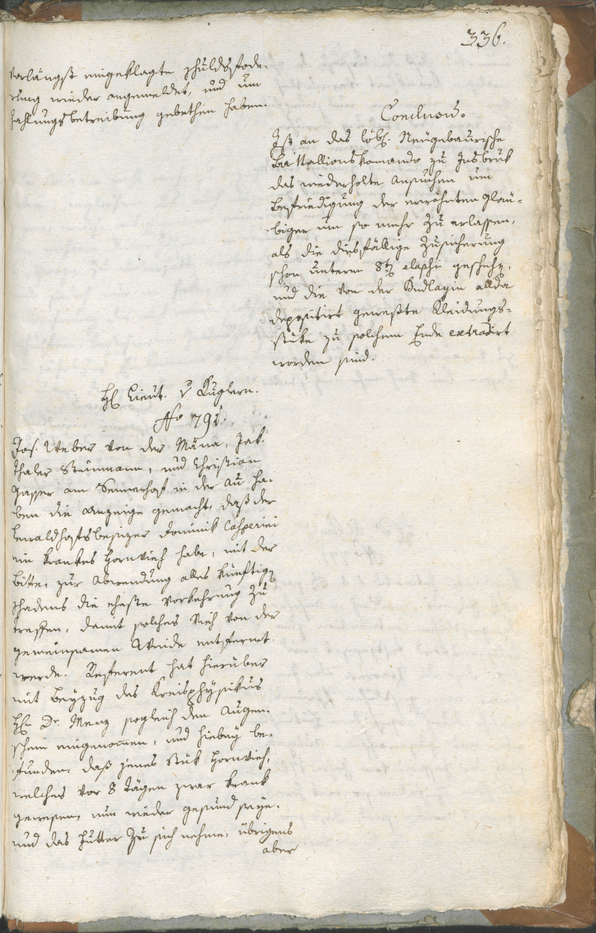 336.
vorlängst eingeklagte Schuldsforde-
rung wieder angemeldet, und um
Zahlungsbetreibung gebethen haben.
Conclusum.
Ist an das löbl. Neugebaurische
Battallionskomando zu Insbruk
das wiederholte Ansuchen um
Befriedigung der erwehnten Gläu-
biger um so mehr zu erlassen,
als die diesfällige Zusicherung
schon unterm 8ten elapsi geschehen,
und die von der allda
depositirt geweste Kleidungs-
stüke zu solchem Ende extradirt
worden sind.
H. Lieut. v Kuglern.
No 791.
Jos. Weber von der Mäna, Jak.
Thaler Steinmann, und Christian
Gasser am Sennerhof in der Au ha-
ben die Anzeige gemacht, daß der
Hofsbesizer Dominik
ein krankes Hornvieh habe, mit der
Bitte, zur Abwendung alles künftigen
Schadens die eheste Vorkehrung zu
treffen, damit solches Vieh von der
gemeinsamen Weide entfernt
werde. Referent hat hierüber
mit Beyzug des Kreisphysikus
Hn Dr. Menz sogleich den Augen-
schein eingenomen, und hiebey be-
funden, daß jenes Stük Hornvieh,
welches vor 8 Tägen zwar krank
gewesen, nun wieder gesund seye,
und das Futter zu sich nehme, übrigens
aber